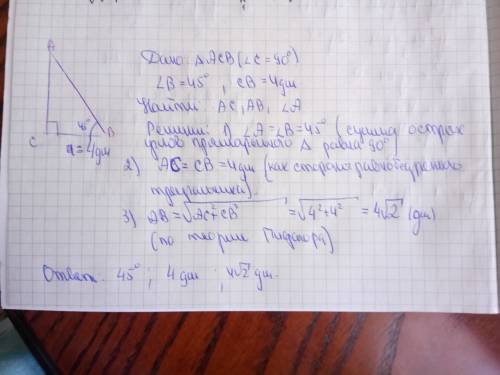 A
45°
C
B
a = 4дм
Дано: Δ ACB (∠C = 90°)
∠B = 45°, CB = 4дм
Найти: AC, AB, ∠A
Решение: 1) ∠A = ∠B = 45° (сумма острых
углов прямоугольного Δ равна 90°)
2) AC = CB = 4дм (как стороны равнобедренного
треугольника).
3) AB = √AC²+CB² = √4²+4² = 4√2 (дм)
(по теореме Пифагора)
Ответ: 45°; 4 дм; 4√2 дм.